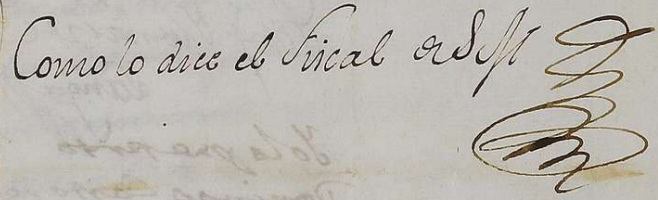 Como lo dice el Fiscal de S M